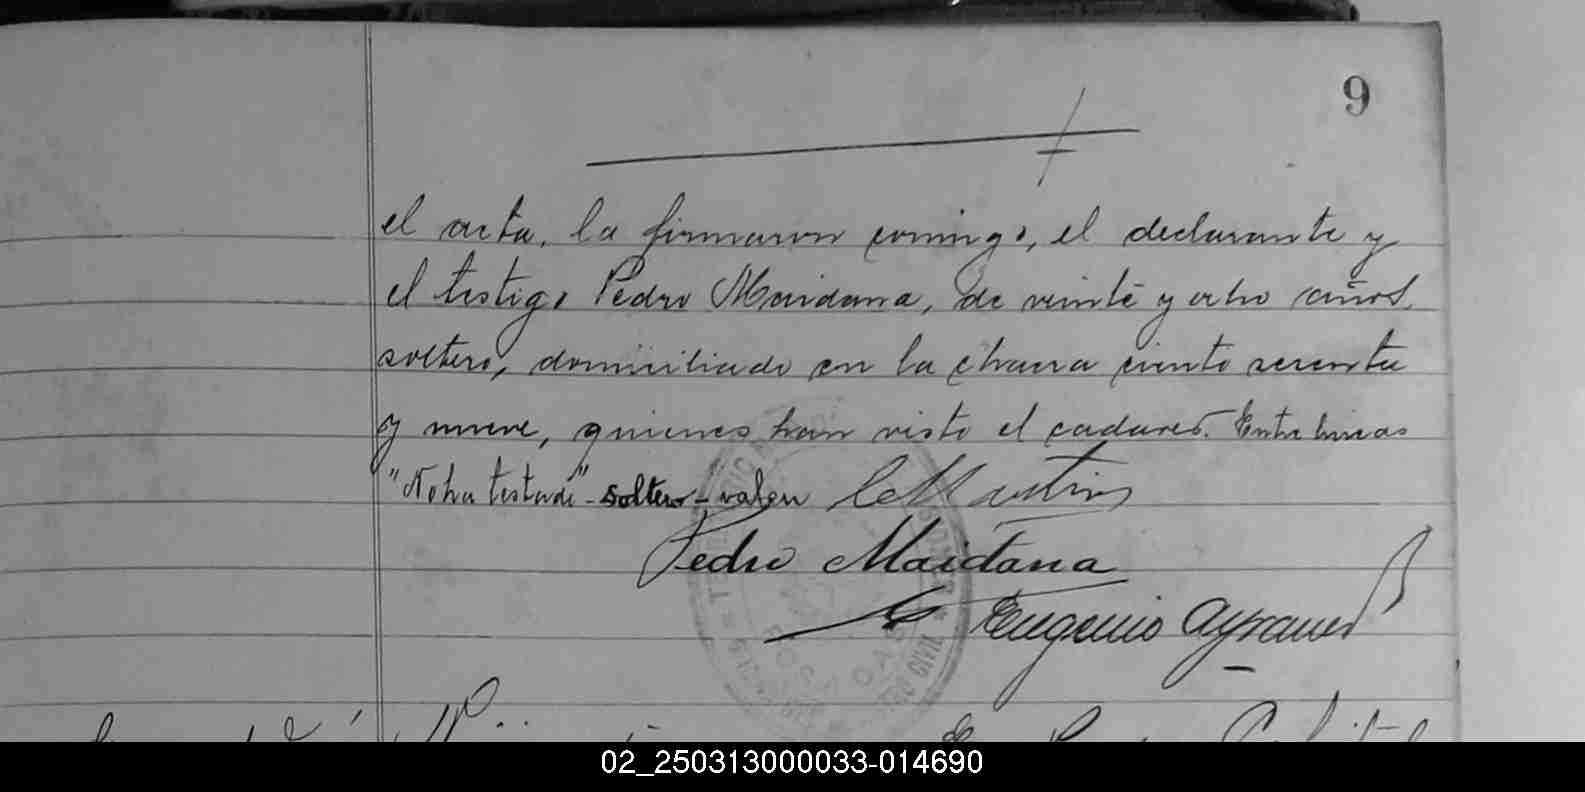 9
el acta, la firmaron conmigo, el declarante y
el testigo Pedro Maidana, de veinte y ocho años,
soltero, domiciliado en la chacra ciento sesenta
y nueve, quienes han visto el cadaver. Entre lineas
"No ha testado" - soltero - valen
Pedro Maidana
Eugenio
02_250313000033-014690